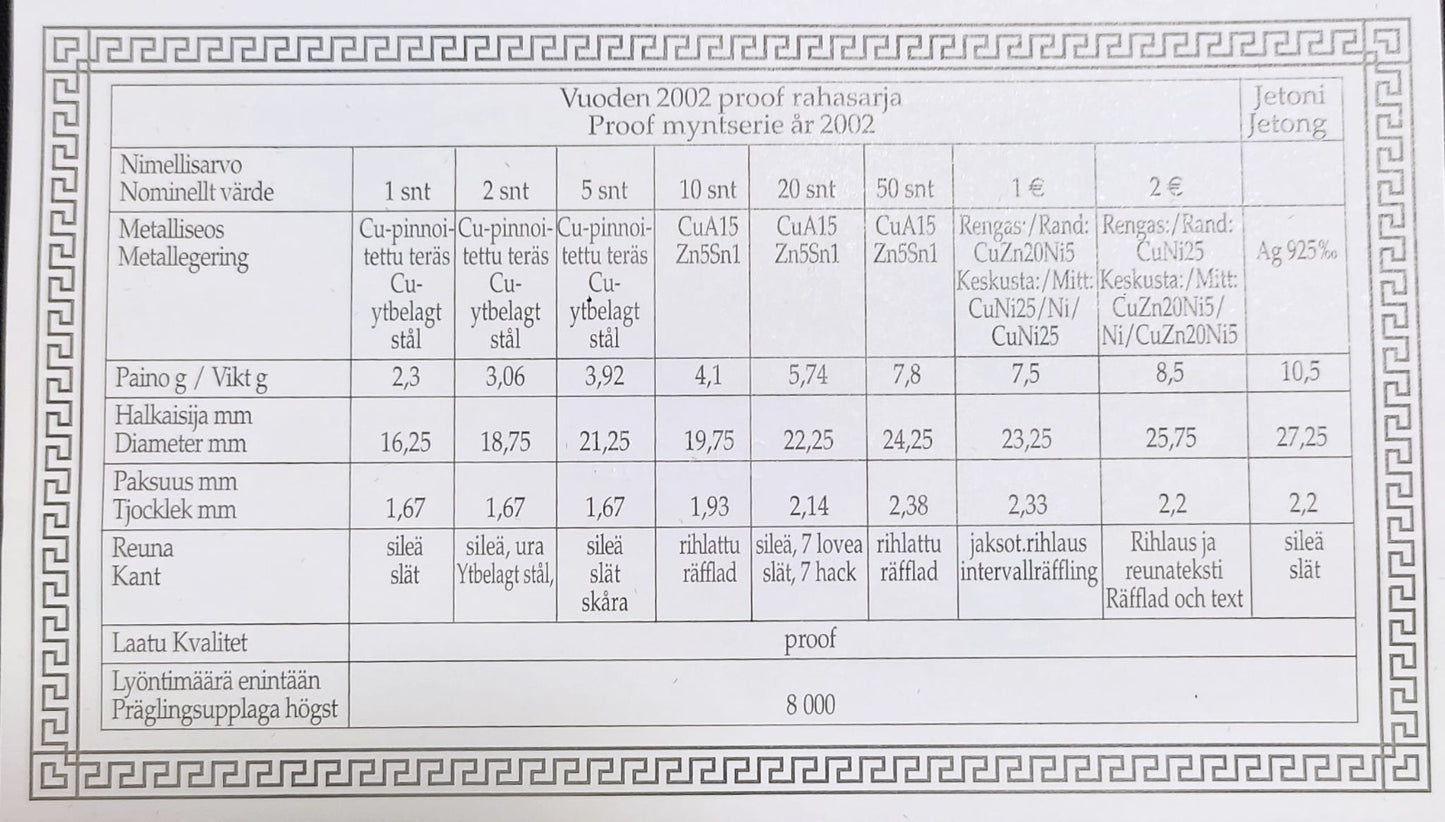 Vuoden 2002 proof rahasarja
Proof myntserie år 2002
Jetoni
Jetong
Nimellisarvo
Nominellt värde 1 snt 2 snt 5 snt 10 snt 20 snt 50 snt 1 € 2 €
Metalliseos Cu-pinnoi- Cu-pinnoi- Cu-pinnoi- CuA15 CuA15 CuA15 Rengas:/Rand: Rengas:/Rand:
Metallegering tettu teräs tettu teräs tettu teräs Zn5Sn1 Zn5Sn1 Zn5Sn1 CuZn20Ni5 CuNi25 Ag 925‰
Cu- Cu- Cu- Keskusta:/Mitt: Keskusta:/Mitt:
ytbelagt ytbelagt ytbelagt CuNi25/Ni/ CuZn20Ni5/
stål stål stål CuNi25 Ni/CuZn20Ni5
Paino g / Vikt g 2,3 3,06 3,92 4,1 5,74 7,8 7,5 8,5 10,5
Halkaisija mm
Diameter mm 16,25 18,75 21,25 19,75 22,25 24,25 23,25 25,75 27,25
Paksuus mm
Tjocklek mm 1,67 1,67 1,67 1,93 2,14 2,38 2,33 2,2 2,2
Reuna sileä sileä, ura sileä rihlattu sileä, 7 lovea rihlattu jaksot.rihlaus Rihlaus ja sileä
Kant slät Ytbelagt stål, slät räfflad slät, 7 hack räfflad intervallräffling reunateksti slät
skåra Räfflad och text
Laatu Kvalitet proof
Lyöntimäärä enintään
Präglingsupplaga högst 8 000